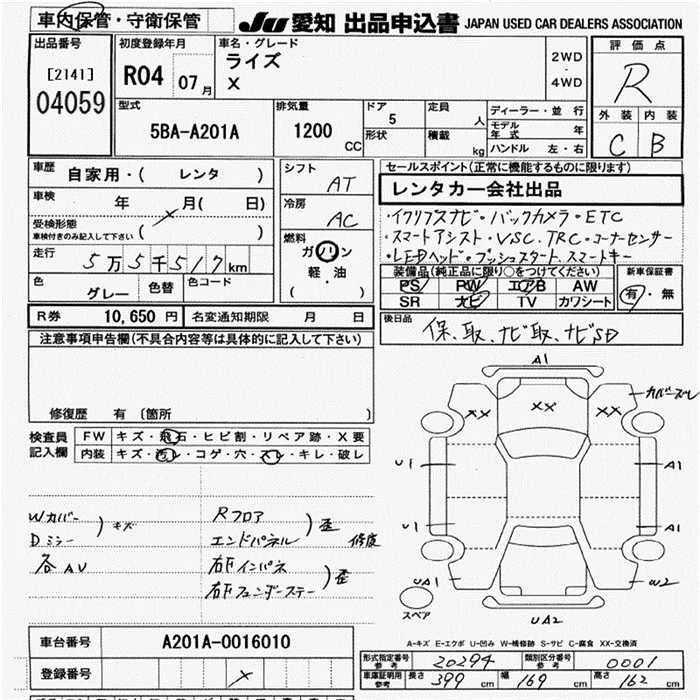 車内保管・守衛保管
JU 愛知 出品申込書 JAPAN USED CAR DEALERS ASSOCIATION
出品番号
[2141]
04059
初度登録年月
R04 07月
車名・グレード
ライズ
X
2WD
・
4WD
評価点
R
外装 内装
C B
型式
5BA-A201A
排気量
1200 CC
ドア 5
定員 人
形状
積載 kg
ディーラー・並行
モデル年式 年
ハンドル 左・右
車歴 自家用・( レンタ )
車検 年 月( 日)
受検形態
車検付きのみ記入して下さい ( )
走行 5万5千517km
色 グレー
色替
色コード
シフト AT
冷房 AC
燃料
ガソリン
軽・油
( )
セールスポイント(正常に機能するものに限ります)
レンタカー会社出品
・イクリプスナビ・バックカメラ・ETC
・スマートアシスト・VSC、TRC・コーナーセンサー
・LEDヘッド・プッシュスタート・スマートキー
装備品(純正品に限り○をつけてください)
PS PW エアB AW
SR ナビ TV カワシート
新車保証書
有・無
R券 10,650 円 名変通知期限 月 日
後日品
保、取、ナビ取、ナビSD
注意事項申告欄(不具合内容等は具体的に記入して下さい)
修復歴 有 〔箇所 〕
検査員
記入欄
FW キズ・飛石・ヒビ割・リペア跡・X要
内装 キズ・汚レ・コゲ・穴・スレ・キレ・破レ
Wカバー
Dミラー
) キズ
各AU
Rフロア
エンドパネル
) 歪 修復
右Fインパネ
右Fフェンダーステー
) 歪
A1
XX XX XX
カバーズレ
U1 A1
U1 A1
UA1 W2
UA2
スペア
A-キズ E-エクボ U-凹み W-補修跡 S-サビ C-腐食 XX-交換済
車台番号 A201A-0016010
登録番号
形式指定番号 参考 20294
類別区分番号 参考 0001
車庫証明用 参考 長さ 399 cm 幅 169 cm 高さ 162 cm